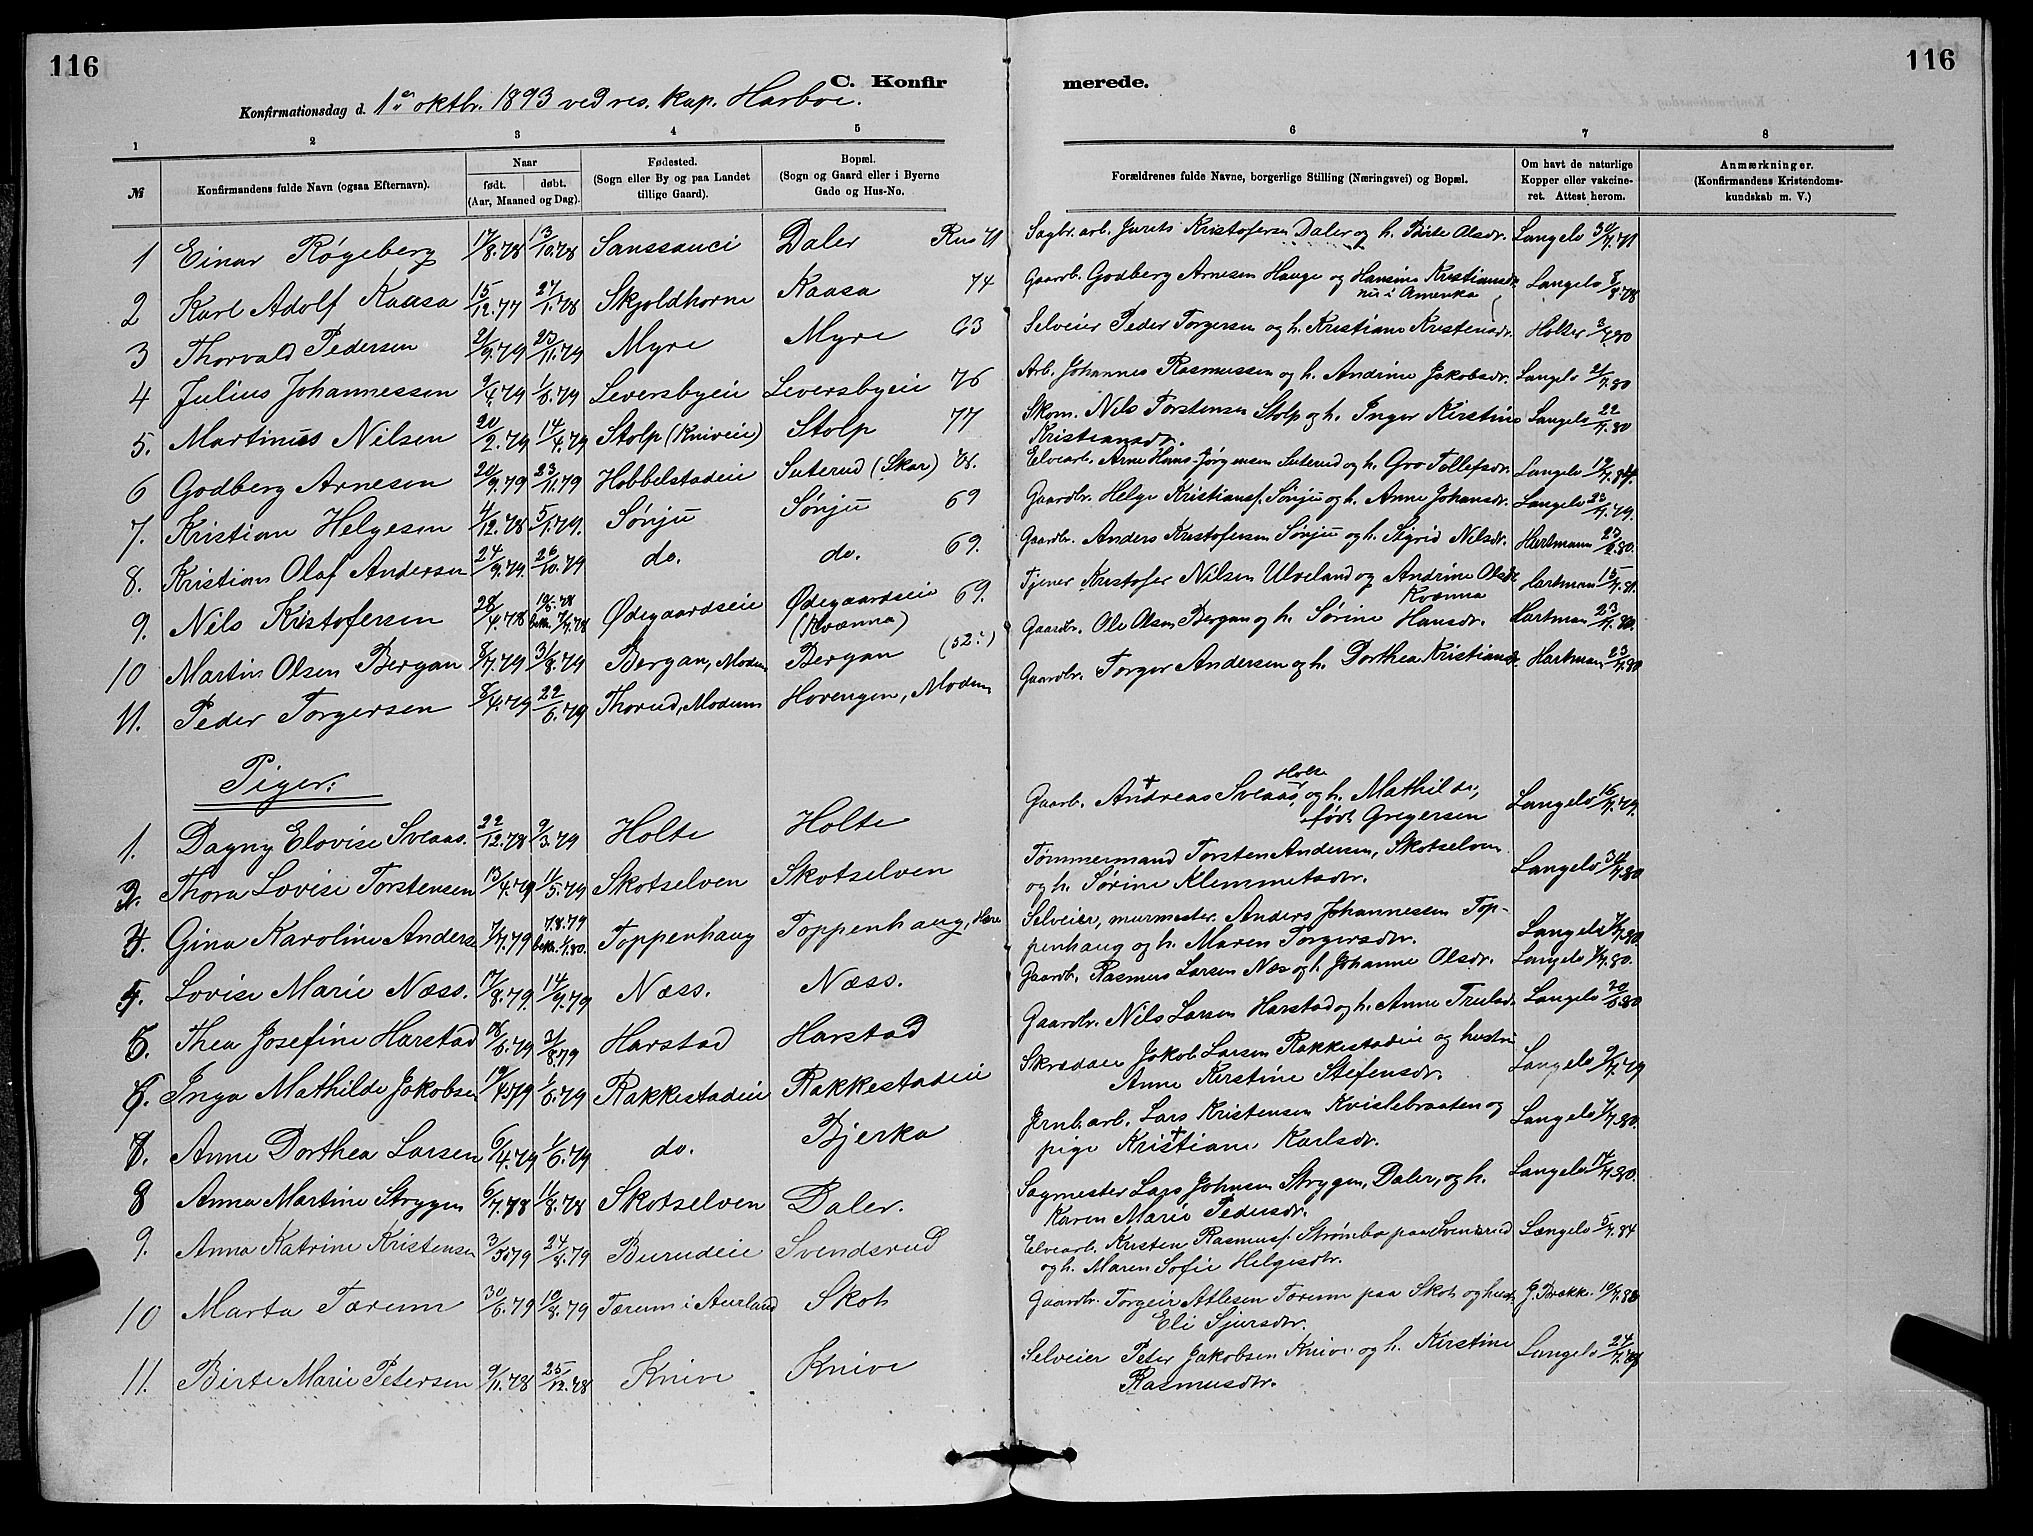 116
116
C. Konfirmerede.
Konfirmationsdag d. 1ste oktbr. 1893 ved res. kap. Harboe.
1 2 3 4 5 6 7 8
№ Konfirmandens fulde Navn (ogsaa Efternavn). Naar født. døbt. (Aar, Maaned og Dag). Fødested. (Sogn eller By og paa Landet tillige Gaard). Bopæl. (Sogn og Gaard eller i Byerne Gade og Hus-No. Forældrenes fulde Navne, borgerlige Stilling (Næringsvei) og Bopæl. Om havt de naturlige Kopper eller vakcineret. Attest herom. Anmærkninger. (Konfirmandens Kristendomskundskab m. V.)
1 Einar Røgeberg 17/8.78 13/10.78 Sanssouci Daler Sagbr. arb. Kristofersen Daler og h. Birte Olsdr. Langelo
2 Karl Adolf Kaasa 15/12.77 27/1.78 Skjoldhorne Kaasa 74 Gaarb. Godberg Arnesen Hauge og Hansine Kristiansdr. nu i Amerika Langelo 8/8.78
3 Thorvald Pedersen 2/9.79 23/11.79 Myre Myre 63 Selveier Peder Torgersen og h. Kristiane Kristensdr. Holter
4 Julius Johannessen 9/4.79 1/6.79 Leversbyeie Leversbyeie 76 Arb. Johannes Rasmussen og h. Andrine Jakobsdr. Langelo 21/7.80
5. Martinus Nilsen 20/2.79 14/4.79 Stolp (Kniveie) Stolp 77 Skom. Nils Torstensen Stolp og h. Inger Kirstine Kristiansdr. Langelo 22/7.80
6 Godberg Arnesen 20/9.79 23/11.79 Hobbelstadeie Suterud (Skar) 78. Elvearb. Arne Hans Jørgensen Suterud og h. Gro Tollefsdr. Langelo 19/7.84.
7. Kristian Helgesen 4/12.78 5/1.79. Sønju Sønju 69 Gaardbr. Helge Kristiansf. Sønju og h. Anne Johansdr. Langelo 23/7.79.
8. Kristian Olaf Andersen 24/9.79. 26/10.79 do. do. 69. Gaardbr. Anders Kristofersen Sønju og h. Sigrid Nilsdr. Hartmann
9. Nils Kristofersen 28/4.78 Ødegaardseie Ødegaardseie (Kvænna) 69. Tjener Kristofer Nilsen Ulveland og Andrine Olsdr. Kvænna Hartman 15/7.81.
10 Martin Olsen Bergan 8/7.79 31/8.79 Bergan, Modum Bergan (52:) Gaardbr. Ole Olsen Bergan og h. Sørine Hansdr. Hartman 23/7.80.
11. Peder Torgersen 8/4.79 22/6.79 Thorud, Modum Hovengen, Modum Gaardbr. Torger Andersen og h. Dorthea Kristiansdr. Hartman 23/7.80
Piger:
1. Dagny Elovise Sveaas. 22/12.78 9/3.79 Holte Holte Gaarb. Andreas Sveaas, Holte og h. Mathilde, født Gregersen Langelo 16/7.79.
2. Thora Lovise Torstensen 13/4.79 11/5.79 Skotselven Skotselven Tømmermand Torsten Andersen, Skotselven og h. Sørine Klemmetsdr. Langelo
3. Gina Karoline Anders 7/7.79 7.8.79 Toppenhaug Toppenhaug, Selveier, murmester. Anders Johannessen Toppenhaug og h. Maren Torgersdr. Langelo
4. Lovise Marie Næss. 17/8.79. 14/9.79 Næss. Næss. Gaardb. Rasmus Larsen Næs og h. Johanne Olsdr. Langelo
5. Thea Josefine Harstad 3/8.79 Harstad Harstad Gaardbr. Nils Larsen Harstad og h. Anne Trulsdr. Langelo
6. Inga Mathilde Jakobsen Rakkestadeie Rakkestadeie Skrædder Jakob Larsen Rakkestadeie og hustru Anne Kirstine Stefensdr. Langelo 9/7.79
7. Anne Dorthea Larsen 6/4.79 1/6.79 do. Bjerka Jernb. arb. Lars Kristensen Kvislebraaten og pige Kristiane Karlsdr. Langelo
8 Anna Martine Strygen 6/7.78 11/8.78 Skotselven Daler. Sagmester Lars Johnsen Strygen, Daler, og h. Karen Marie Pedersdr. Langelo 17/7.80.
9. Anna Katrine Kristensen 24/8.79 Burudeie Svendsrud Elvearb. Kristen Rasmusf. Strømbo paa Svensrud og h. Maren Sofie Helgesdr. Langelo 5/7.84
10 Marta Tærum 30/6.79 10/8.79 Tærum i Aurland Skoth Gaardbr. Torgeir Atlesen Tærum paa Skoth og hust. Eli Sjursdr. J. Brekke
11. Birte Marie Petersen 9/11.78 25/12.78 Knive Knive Selveier Peter Jakobsen Knive og h. Kirstine Rasmusdtr. Langelo